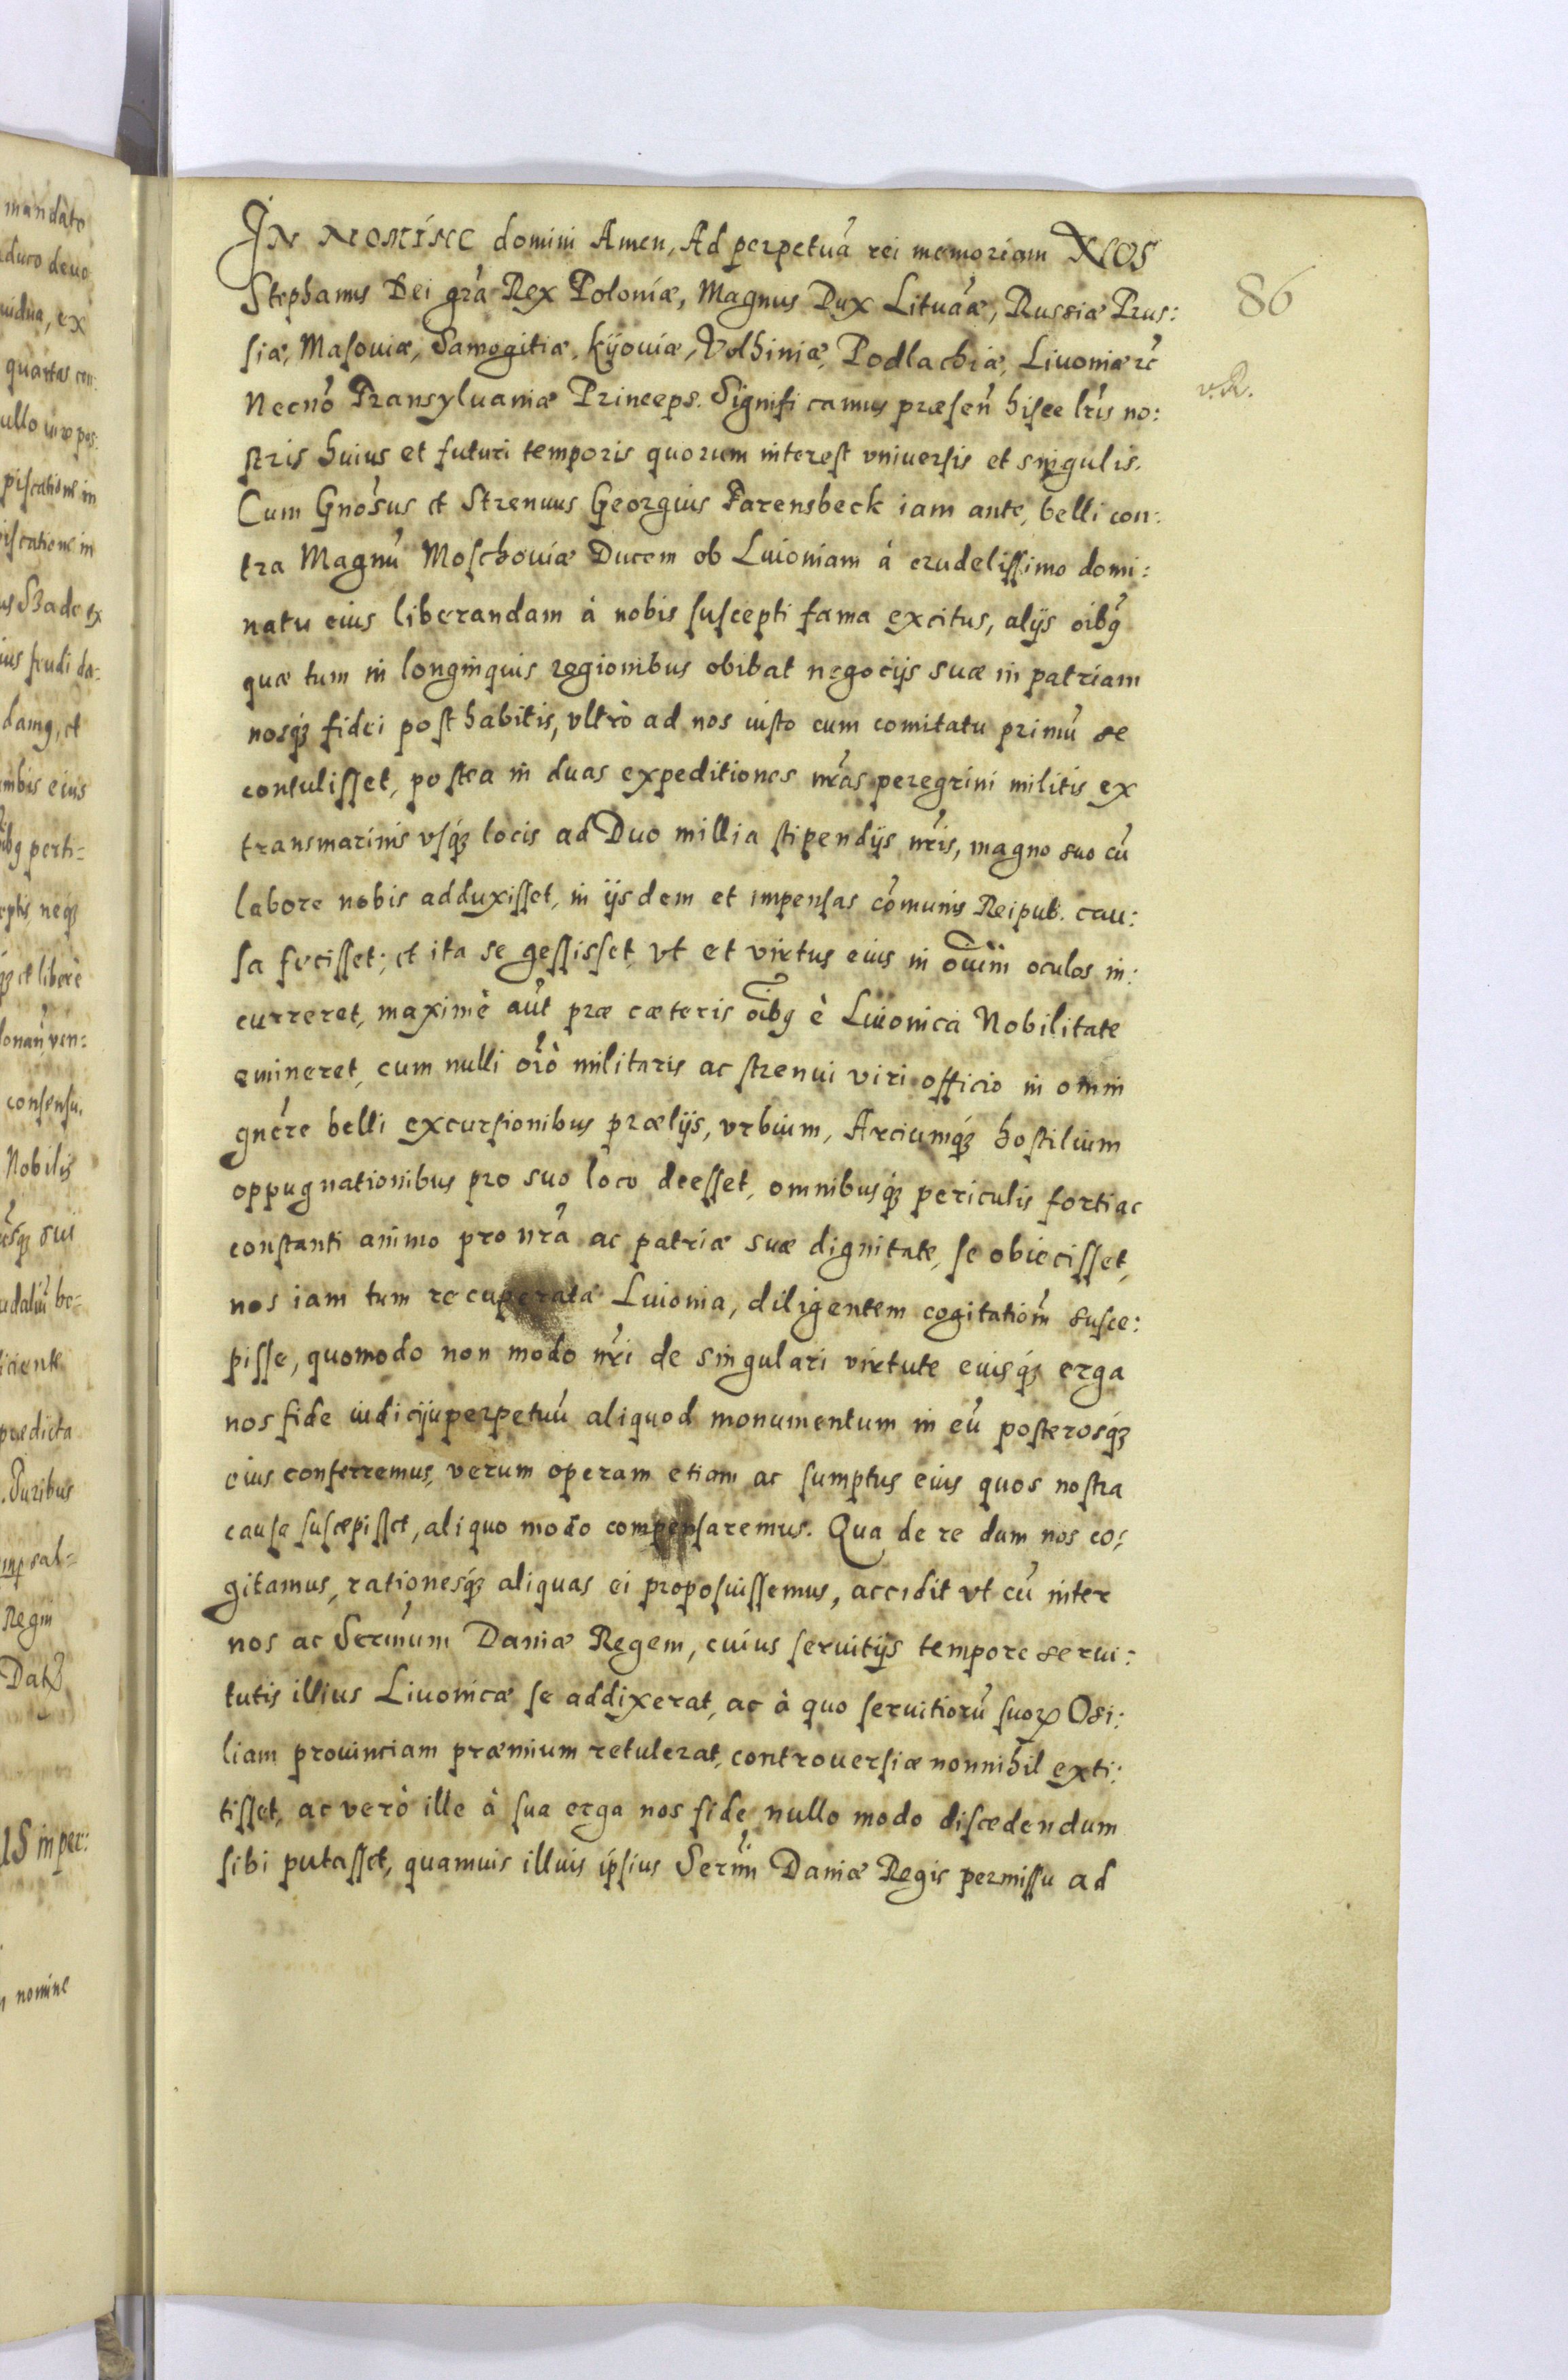 IN NOMINE domini Amen, Ad perpetuā rei memoriam NOS
86
Stephanus Dei grā Rex Poloniæ, Magnus Dux Lituāæ, Russiæ Prus:
siæ, Masouiæ, Samogitiæ, Kijouiæ, Volhiniæ, Podlachiæ, Liuoniæ &c
v.R.
Necnō Transyluaniæ Princeps. Significamus præsen̄ hisce lr̄is no:
stris huius et futuri temporis quorum interest vniuersis et singulis.
Cum Gnōsus et Strenuus Georgius Farensbeck iam ante, belli con:
tra Magnū Moschouiæ Ducem ob Liuioniam à crudelissimo domi:
natu eius liberandam à nobis suscepti fama excitus, alijs oībꝫ
quæ tum in longinquis regionibus obibat negocijs suæ in patriam
nosqꝫ fidei posthabitis, vltrò ad nos iusto cum comitatu primū se
contulisset, postea in duas expeditiones nr̄as peregrini militis ex
transmarinis vsqꝫ locis ad Duo millia stipendijs nr̄is, magno suo cū
labore nobis adduxisset, in ijsdem et impensas cōmunis Reipub. cau:
sa fecisset; et ita se gessisset, vt et virtus eius in oīum oculos in:
curreret, maximè aūt præ cæteris oībꝫ è Liuionica Nobilitate
emineret, cum nulli oīo militaris ac strenui viri officio in omni
gnēre belli excursionibus prælijs, vrbium, Arciumqꝫ hostilium
oppugnationibus pro suo loco deesset, omnibusqꝫ periculis forti ac
constanti animo pro nr̄a ac patriæ suæ dignitate, se obiecisset,
nos iam tum recuperata Liuionia, diligentem cogitatiōm susce:
pisse, quomodo non modo nr̄i de singulari virtute eiusqꝫ erga
nos fide iudicij perpetuū aliquod monumentum in eū posterosqꝫ
eius conferremus, verum operam etiam ac sumptus eius quos nostra
causa suscepisset, aliquo modo compensaremus. Qua de re dum nos co:
gitamus, rationesqꝫ aliquas ei proposuissemus, accidit vt cū inter
nos ac Serm̄um Daniæ Regem, cuius seruitijs tempore serui:
tutis illius Liuonicæ se addixerat, ac à quo seruitiorū suoꝝ Osi:
liam prouinciam præmium retulerat, controuersiæ nonnihil exti:
tisset, ac verò ille à sua erga nos fide nullo modo discedendum
sibi putasset, quamuis illuis ipsius Serm̄i Daniæ Regis permissu ad